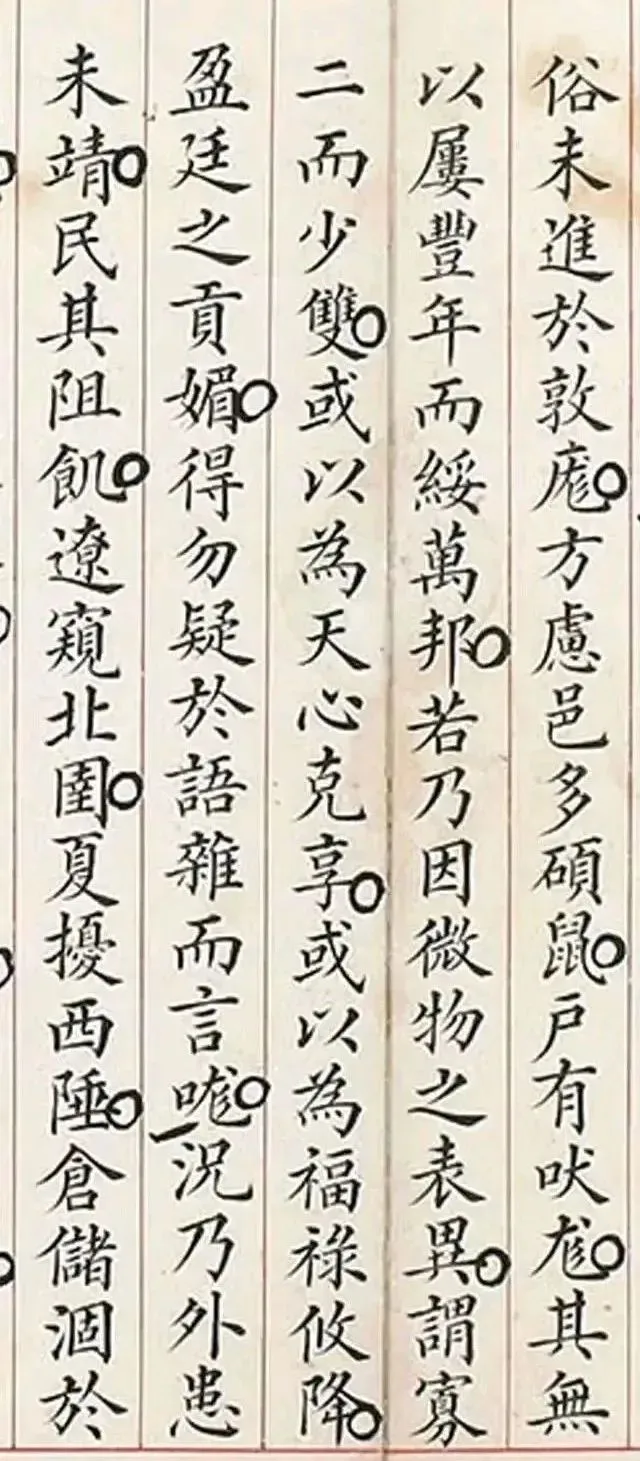 俗未進於敦庬方慮邑多碩鼠戶有吠尨其無
以屢豐年而綏萬邦若乃因微物之表異謂寡
二而少雙或以為天心克享或以為福祿攸降
盈廷之貢媚得勿疑於語雜而言哤況乃外患
未靖民其阻飢遼窺北圉夏擾西陲倉儲涸於